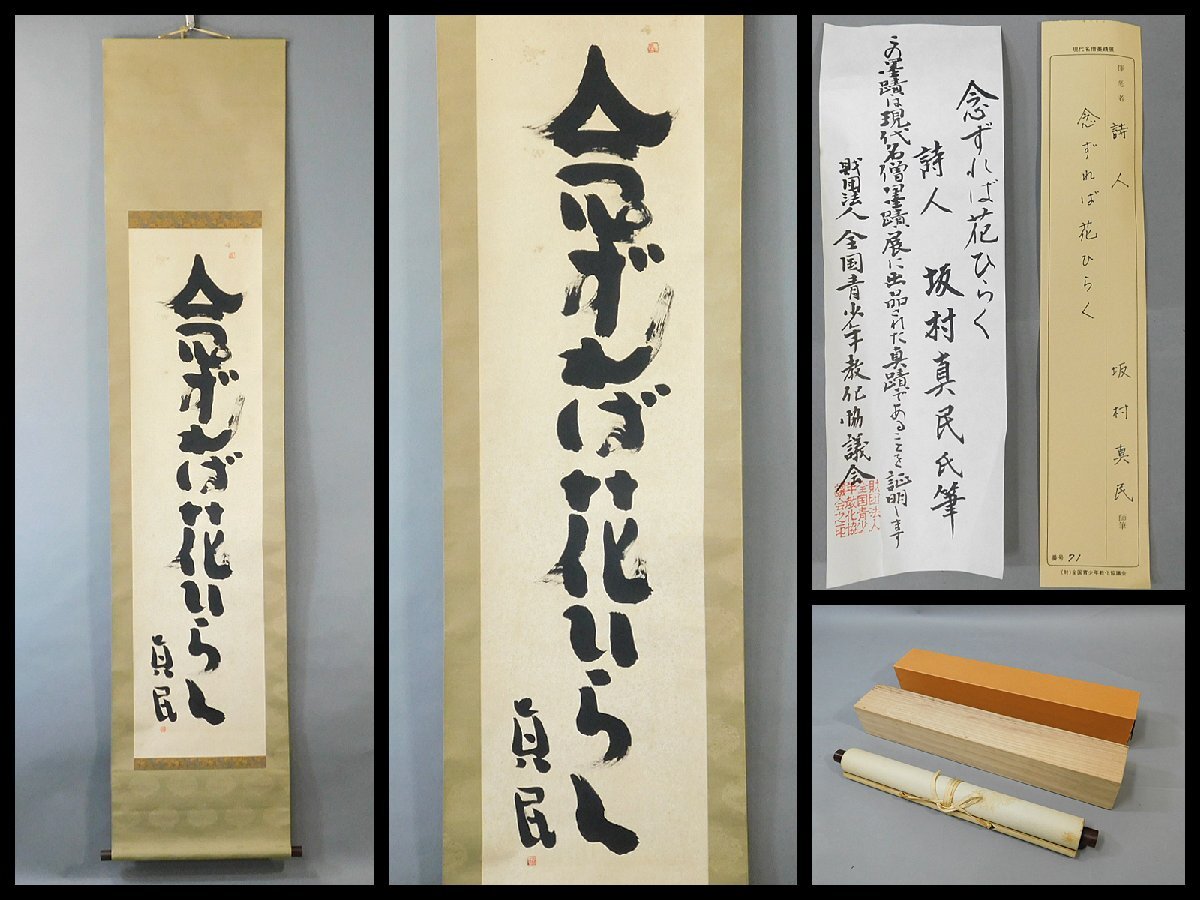 念ずれば花ひらく
真民
念ずれば花ひらく
真民
念ずれば花ひらく
詩人 坂村真民氏筆
この墨蹟は現代名僧墨蹟展に出品された真蹟であることを証明します
財団法人 全国青少年教化協議会
財団法人全国青少年教化協議会之印
現代名僧墨蹟展
揮毫者 詩人 坂村真民 師筆
念ずれば花ひらく
番号 71
(財)全国青少年教化協議会